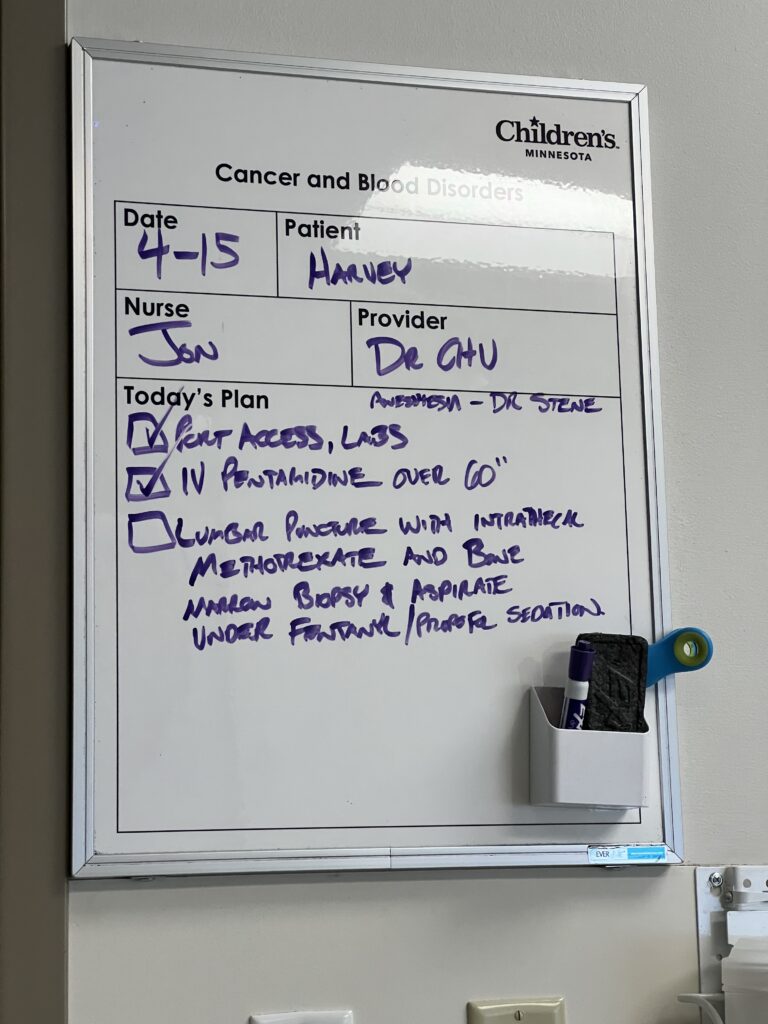 Children's
MINNESOTA
Cancer and Blood Disorders
Date
4-15
Patient
HARVEY
Nurse
JON
Provider
DR CHU
Today's Plan
ANESTHESIA - DR STENE
PORT ACCESS, LABS
IV PENTAMIDINE OVER 60"
LUMBAR PUNCTURE WITH INTRATHECAL
METHOTREXATE AND BONE
MARROW BIOPSY & ASPIRATE
UNDER FENTANYL/PROPOFOL SEDATION.
EVER